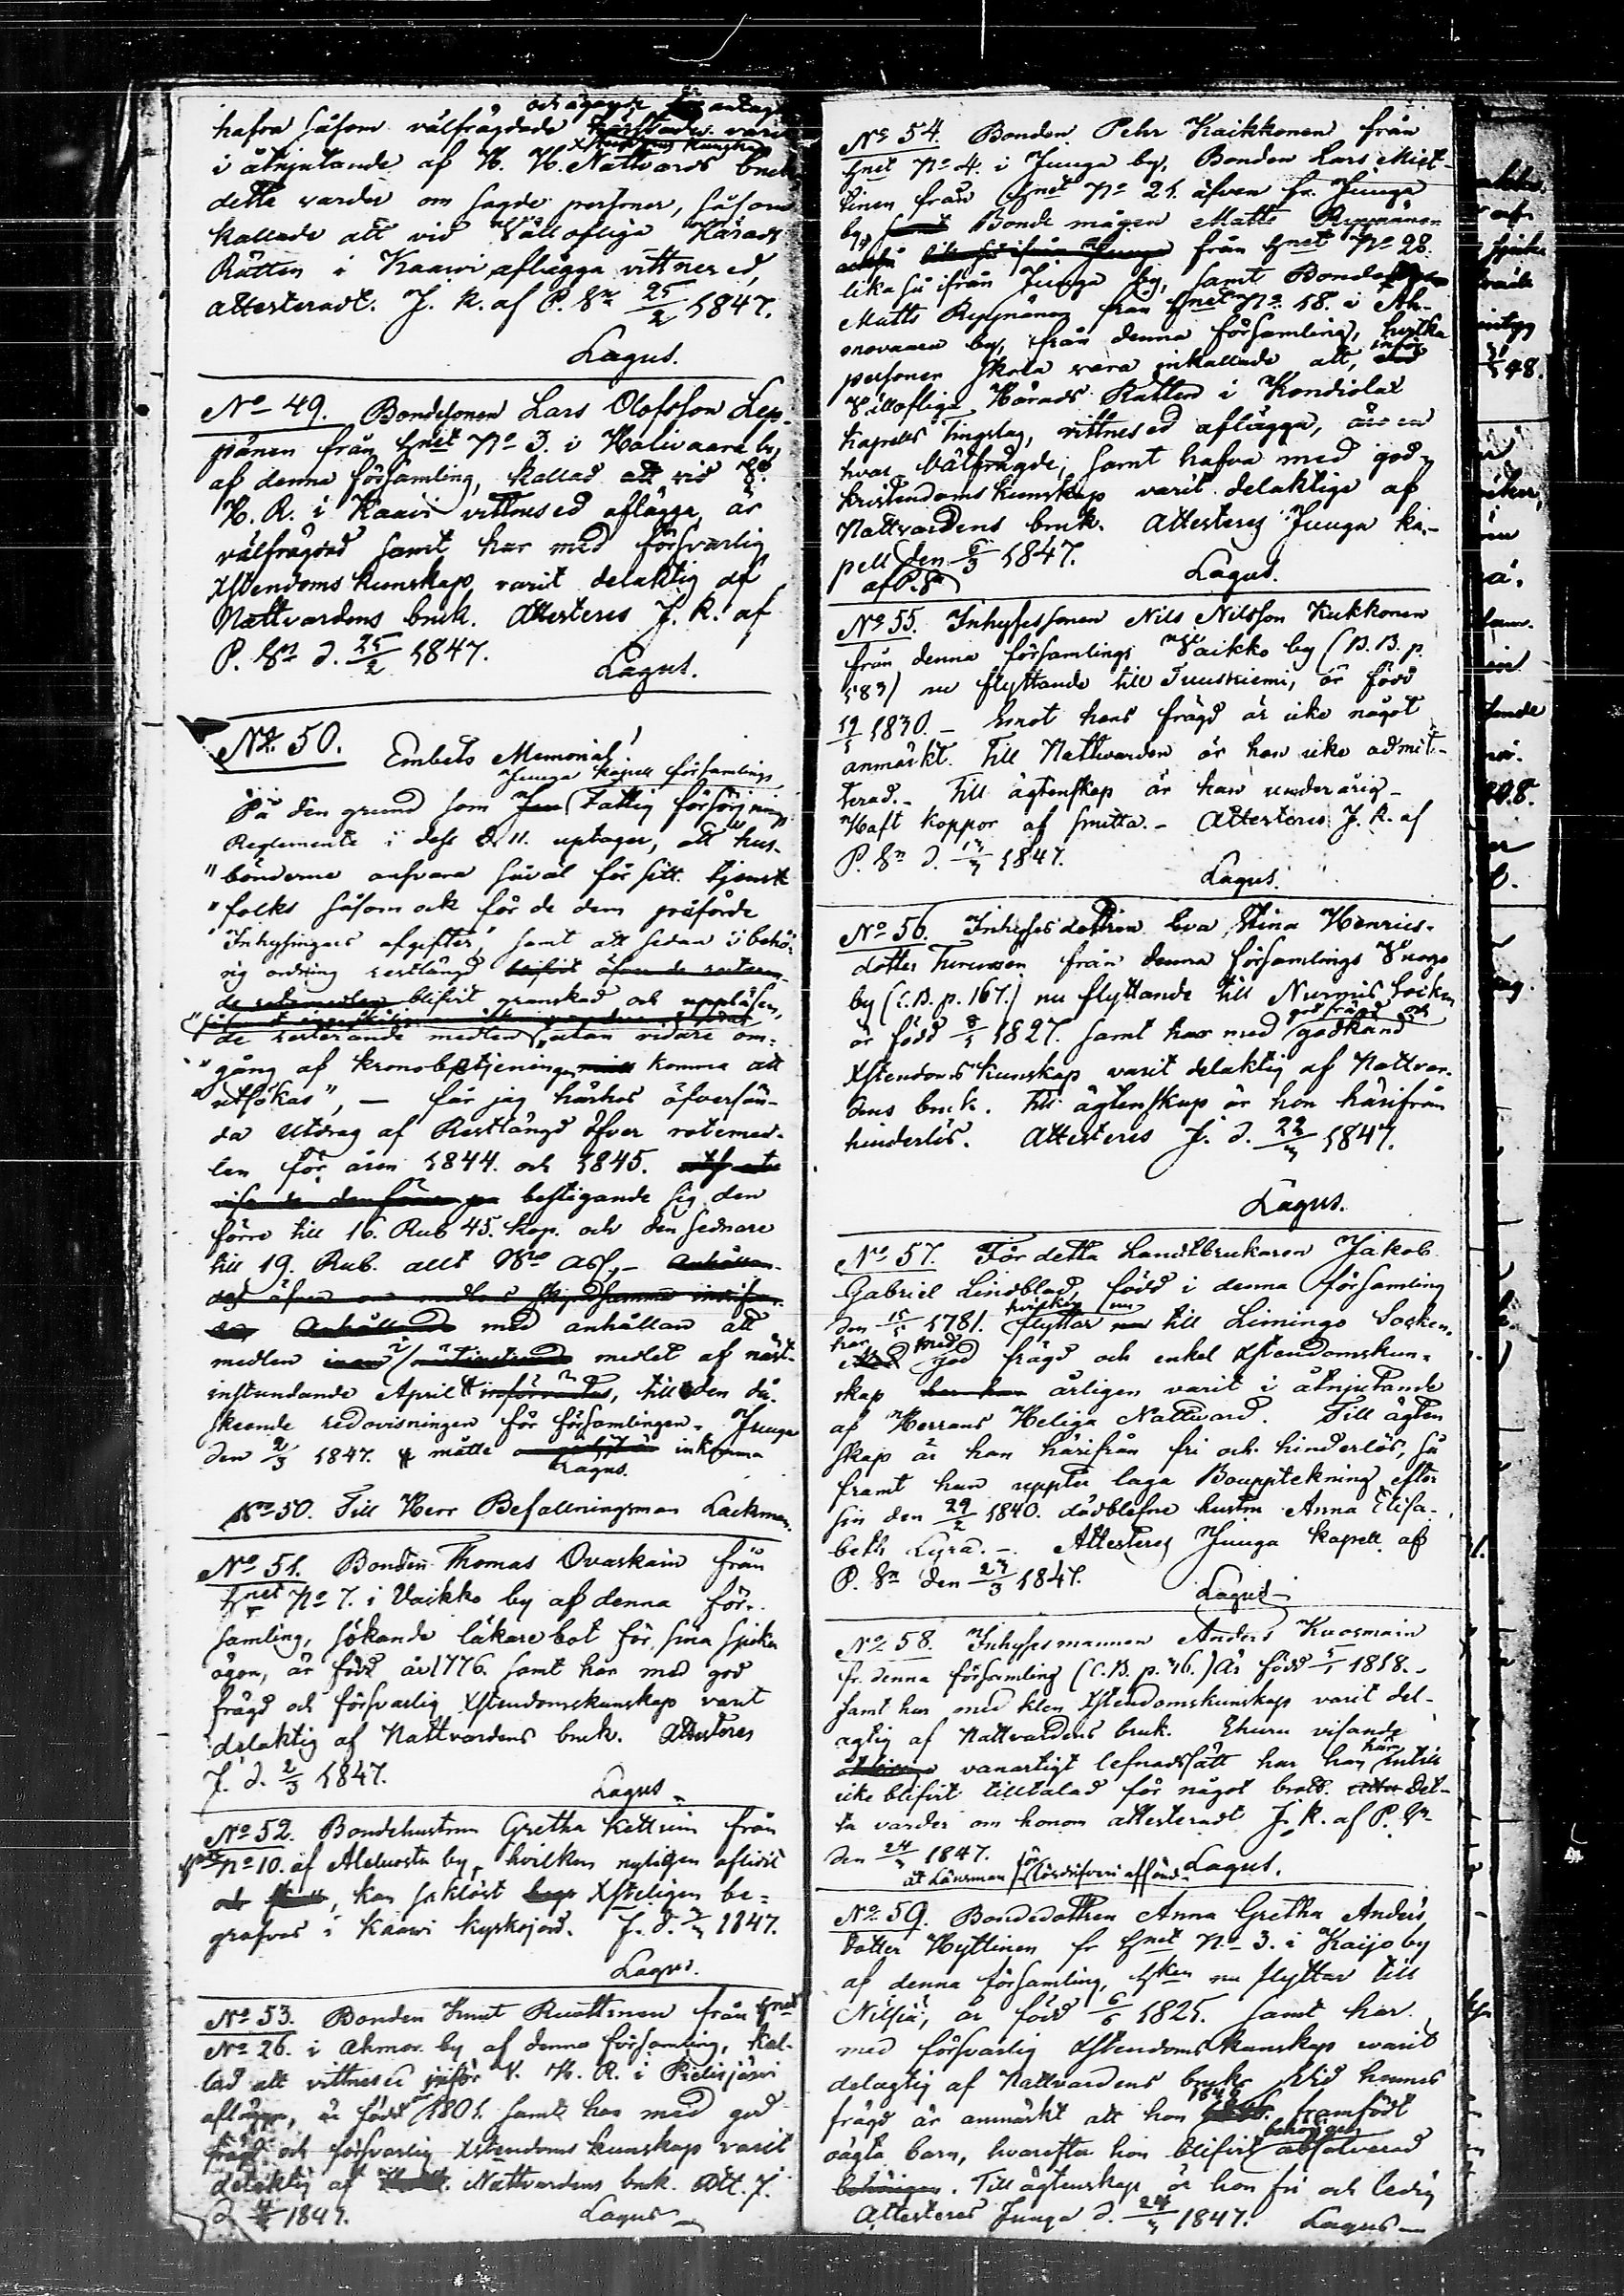 och ägande
hafva såsom välfrägdade
i åtnjutande af H. H. Nattvards bruk
detta varder om sagde personer, såsom
kallade att vid Vällofliga Härads
Rätten i Kaawi aflägga vittnes ed,
attesteradt. J. K. af P. Sn 25/2 1847.
Lagus.
No 49. Bondesonen Lars Olofsson Lep-
pänen från Hnet No 3. i Halivaara by
af denna församling, kallad att vid V.
H. R. i Kaavi vittnesed aflägga, är
välfrägdad samt har med försvarlig
Xstendoms kunskap varit delaktig af
Nattvardens bruk. Attesteres J. K. af
P. Sn d. 25/2 1847.
Lagus.
No. 50. Embets Memorial!
Juuga kapell församlings
På den grund som Fattig försörjnings
Reglemente i dess § 11. uptager, att hus-
"bönderne ansvara såväl för sitt tjenste
"folks såsom ock för de dem påförde
"Inhysingars afgifter, samt att sedan i behö-
rig ordning restlängd
blifvit granskad och uppläsen,
de resterande medlen utan vidare om-
"gång af kronobetjeningen komma att
"utsökas", — får jag härhos öfversän-
da Utdrag af Restlängd öfver rotemed-
len för åren 1844. och 1845.
bestigande sig den
förre till 16. Rub 45. kop. och den sednare
till 19. Rub. allt
med anhållan att
medlen i medlet af näst-
instundande April, till den då
skeende redovisningen för församlingen. Juuga
den 2/3 1847. måtte inkomma
Lagus.
No 50. Till Herr Befallningsman Lackman.
No 51. Bonden Thomas Ovaskain från
Hnet No 7. i Vaikko by af denna för-
samling, sökande läkare bot för sina sjuka
ögon, är född år 1776. samt har med god
frägd och försvarlig Xstendomskunskap varit
delaktig af Nattvardens bruk. Attesteres
J. d. 2/3 1847.
Lagus
No 52. Bondehustrun Gretha Kettuin från
No 10. af Aleluosta by, hvilken nyligen aflidit
kan Xsteligen be-
grafvas i Kaavi kyrkojord. J. d. 1847.
Lagus.
No 53. Bonden Knut Ruottinen från Hnet
No 26. i Ahmov. by af denna församling, kal-
lad att vittnesed inför V. H. R. i Pielisjärvi
aflägga, är född 1801. samt har med god
frägd och försvarlig Xstendoms kunskap varit
delaktig af Nattvardens bruk. Att. J.
d. 1847. Lagus
No 54. Bonden Pehr Kaikkonen från
Hnet No 4. i Juuga by, Bonden Lars Miet-
tinen från Hnet No 21. äfven fr. Juuga
by, Bonde mågen Matts Ryynänen
från Hnet No 28.
lika så ifrån Juuga by, samt Bonden
Matts Ryynänen från Hnet No. 18. i Ah-
movaara by, från denna församling, hvilka
personer skola vara inkallade att, inför
Vällofliga Härads Rätten i Kondiolax
kapells tingslag, vittnesed aflägga, äro en
hvar välfrägde, samt hafva med god
kristendoms kunskap varit delaktige af
Nattvardens bruk. Attesteres Juuga ka-
pell den 6/3 1847.
af P. Sn Lagus.
No 55. Inhysessonen Nils Nilsson Kukkonen
från denna församlings Vaikko by (B. B. p.
183) nu flyttande till Tuusniemi, är född
1830. – Emot hans frägd är icke något
anmärkt. Till Nattvarden är han icke admit-
terad. – Till ägtenskap är han underårig –
Haft koppor af smitta. – Attesteres J. K. af
P. Sn d. 1847.
Lagus.
No 56. Inhyses dottren Eva Stina Henrics-
dotter Turunen från denna församlings
by (C. B. p. 167.) nu flyttande till Nurmis Socken
god frägd och
är född 1827. samt har med godkänd
Xstendoms kunskap varit delaktig af Nattvar-
dens bruk. Till ägtenskap är hon härifrån
hinderlös. Attesteres J. d. 22/3 1847.
Lagus.
No 57. För detta Landtbrukaren Jakob
Gabriel Lindblad, född i denna församling
hvilken nu
den 1781. flyttar till Limingo Socken,
har med
god frägd och enkel Xstendomskun-
skap årligen varit i åtnjutande
af Herrans Heliga Nattvard. Till ägten
skap är han härifrån fri och hinderlös, så
framt han uppter laga Bouppteckning efter
sin den 29/2 1840. dödblefne hustru Anna Elisa-
beth Lyra. – Attesteres Juuga kapell af
P. Sn den 23/3 1847.
Lagus
No 58. Inhysesmannen Anders Kuosmain
fr. denna församling (C. B. p. 46.) är född 1818. –
samt har med klen Xstendomskunskap varit del-
agtig af Nattvardens bruk. Ehuru visande
här
vanartigt lefnadssätt har han intill
icke blifvit tilltalad för något brott. Det-
ta varder om honom attesteradt J. K. af P. Sn
den 24/3 1847.
Lagus.
No 59. Bondedottren Anna Gretha Anders
dotter Hyttinen fr Hnet No 3. i Kaijo by
af denna församling, hken nu flyttar till
Nilsiä, är född 6/6 1825. samt har
med försvarlig Xstendoms kunskap varit
delagtig af Nattvardens bruk. Vid hennes
1846
frägd är anmärkt att hon framfödt
behörigen
oägta barn, hvarefter hon blifvit absolverad
Till ägtenskap är hon fri och ledig
Attesteres Juuga d. 24/3 1847. Lagus